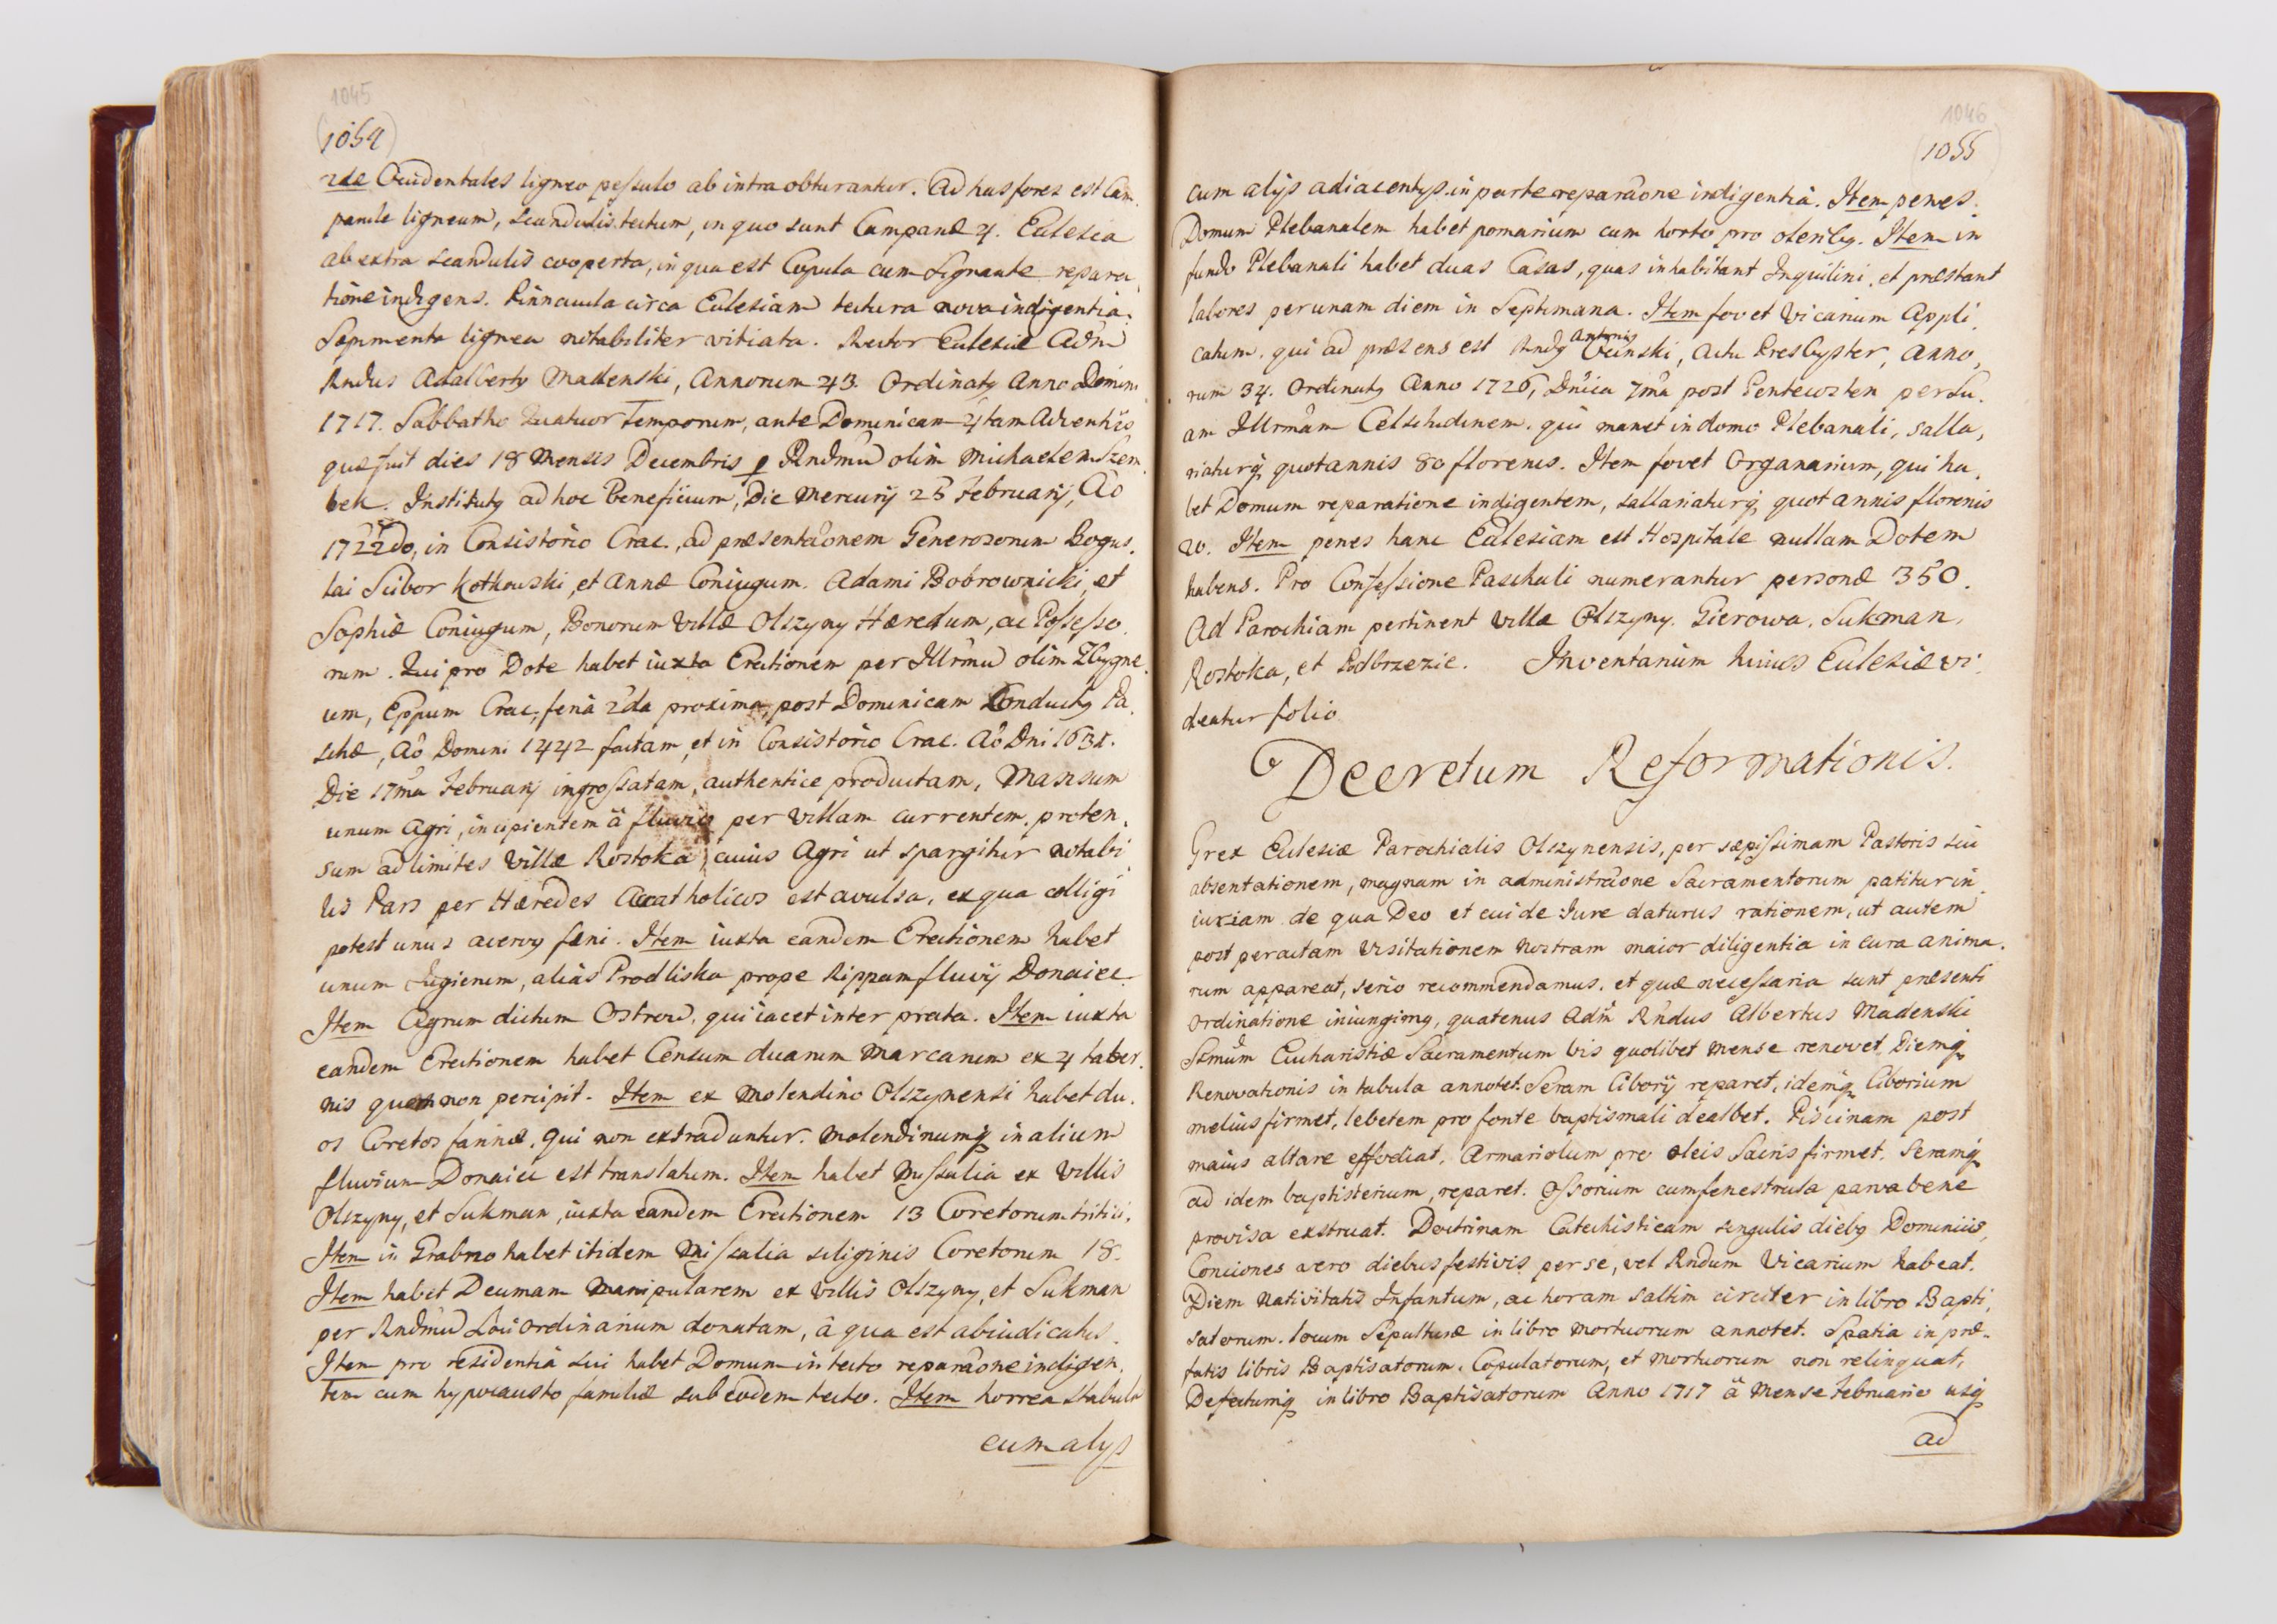 1045
1054
2dæ Occidentales ligneo pessulo ab intra obturantur. Ad has fores est Cam,
panile ligneum, scandulis tectum, in quo sunt Campanæ 4. Ecclesia
ab extra scandulis cooperta, in qua est Cupula cum Signante repara,
tione indigens. Pinnacula circa Ecclesiam tectura nova indigentia.
Sæpimenta lignea notabiliter vitiata. Rector Ecclesiæ Adm̃
Rndus Adalbertq Madenski, Annorum 43. Ordinatq Anno Domini
1717. Sabbatho Quatuor Temporum, ante Dominicam 4tam Adventus
quæ fuit dies 18 Mensis Decembris p Rndmũ olim Michaelem Szem,
bek. Institutq ad hoc Beneficium, Die Mercurij 25 Februarij, Aõ
1722do, in Consistorio Crac., ad præsentãonem Generosorum Bogus,
lai Scibor Kotkowski, et Annæ Coniugum. Adami Bobrownicki, et
Sophiæ Coniugum, Bonorum Villæ Olszyny Hæredum, ac Possesso,
rum. Qui pro Dote habet iuxta Erectionem per Illrmũ olim Zbygne,
um, Eppum Crac, feria 2da proxima, post Dominicam Conductq Pa,
schæ, Aõ Domini 1442 factam, et in Consistorio Crac. Aõ Dni 1631.
Die 17ma Februarij ingrossatam, authentice productam, Mansum
unum Agri, incipientem â fluvio per Villam currentem, proten,
sum ad limites Villæ Rostoka, cuius Agri ut spargitur notabi,
lis Pars per Hæredes Accatholicos est avulsa, ex qua colligi
potest unus acervq fæni. Item iuxta eandem Erectionem habet
unum Jugierum, aliàs Prodliska prope Rippam fluvij Donaiec.
Item Agrum dictum Ostrow, qui iacet inter prata. Item iuxta
eandem Erectionem habet Censum duarum Marcarum ex 4 taber,
nis quem non percipit. Item ex Molendino Olszynensi habet du,
os Coretos farinæ, qui non extraduntur. Molendinumq in alium
fluvium Donaiec est translatum. Item habet Missalia ex Villis
Olszyny, et Sukman, iuxta eandem Erectionem 13 Coretorum tritici.
Item in Grabno habet itidem Missalia siliginis Coretorum 18.
Item habet Decimam Manipularem ex Villis Olszyny, et Sukman
per Rndmũ Loci Ordinarium donatam, â qua est abiudicatus.
Item pro residentia sui habet Domum in tecto reparãone indigen,
tem cum hypocausto familiæ sub eodem tecto. Item horrea stabula
cum alys
1046
1055
cum alijs adiacentys in parte reparãone indigentia. Item penes
Domum Plebanalem habet pomarium cum horto pro oleribq. Item in
fundo Plebanali habet duas Casas, quas inhabitant Inquilini, et præstant
labores per unam diem in Septimana. Item fovet Vicarium Appli,
catum. qui ad præsens est Rndq Antonius Ociński, Actu Presbyter, Anno,
rum 34. Ordinatq Anno 1726, Dnica 7ma post Pentecosten per Su,
am Illrmam Celsitudinem. qui manet in domo Plebanali, salla,
riaturq quotannis 80 florenis. Item fovet Organarium, qui ha,
bet Domum reparatione indigentem, sallariaturq quot annis florenis
20. Item penes hanc Ecclesiam est Hospitale nullam Dotem
habens. Pro Confessione Paschali numerantur personæ 350.
Ad Parochiam pertinent Villæ Olszyny. Gierowa. Sukman,
Rostoka, et Podbrzezie. Inventarium huius Ecclesiæ vi,
deatur folio
Decretum Reformationis.
Grex Ecclesiæ Parochialis Olszynensis, per sæpissimam Pastoris sui
absentationem, magnam in administrãone Sacramentorum patitur in,
iuriam de qua Deo et cui de Jure daturus rationem, ut autem
post peractam Visitationem Nostram maior diligentia in cura anima,
rum appareat, serio recommendamus. et quæ necessaria sunt præsenti
ordinatione iniungimq, quatenus Adm̃ Rndus Albertus Madenski
Ssmũm Eucharistiæ Sacramentum bis quolibet Mense renovet Diemq
Renovationis in tabula annotet. Seram Ciborij reparet, idemq Ciborium
melius firmet, lebetem pro fonte baptismali dealbet. Piscinam post
maius altare effodiat. Armariolum pro oleis Sacris firmet. Seramq
ad idem baptisterium, reparet. Ossorium cum fenestrula parva bene
provisa exstruat. Doctrinam Catechisticam singulis diebq Dominicis,
Conciones vero diebus festivis per se, vel Rndum Vicarium habeat.
Diem Nativitatis Infantum, ac horam saltim circiter in libro Bapti,
satorum. locum Sepulturæ in libro Mortuorum annotet. Spatia in præ-
fatis libris Baptisatorum. Copulatorum, et Mortuorum non relinquat.
Defectumq in libro Baptisatorum Anno 1717 â Mense Februario usq
ad